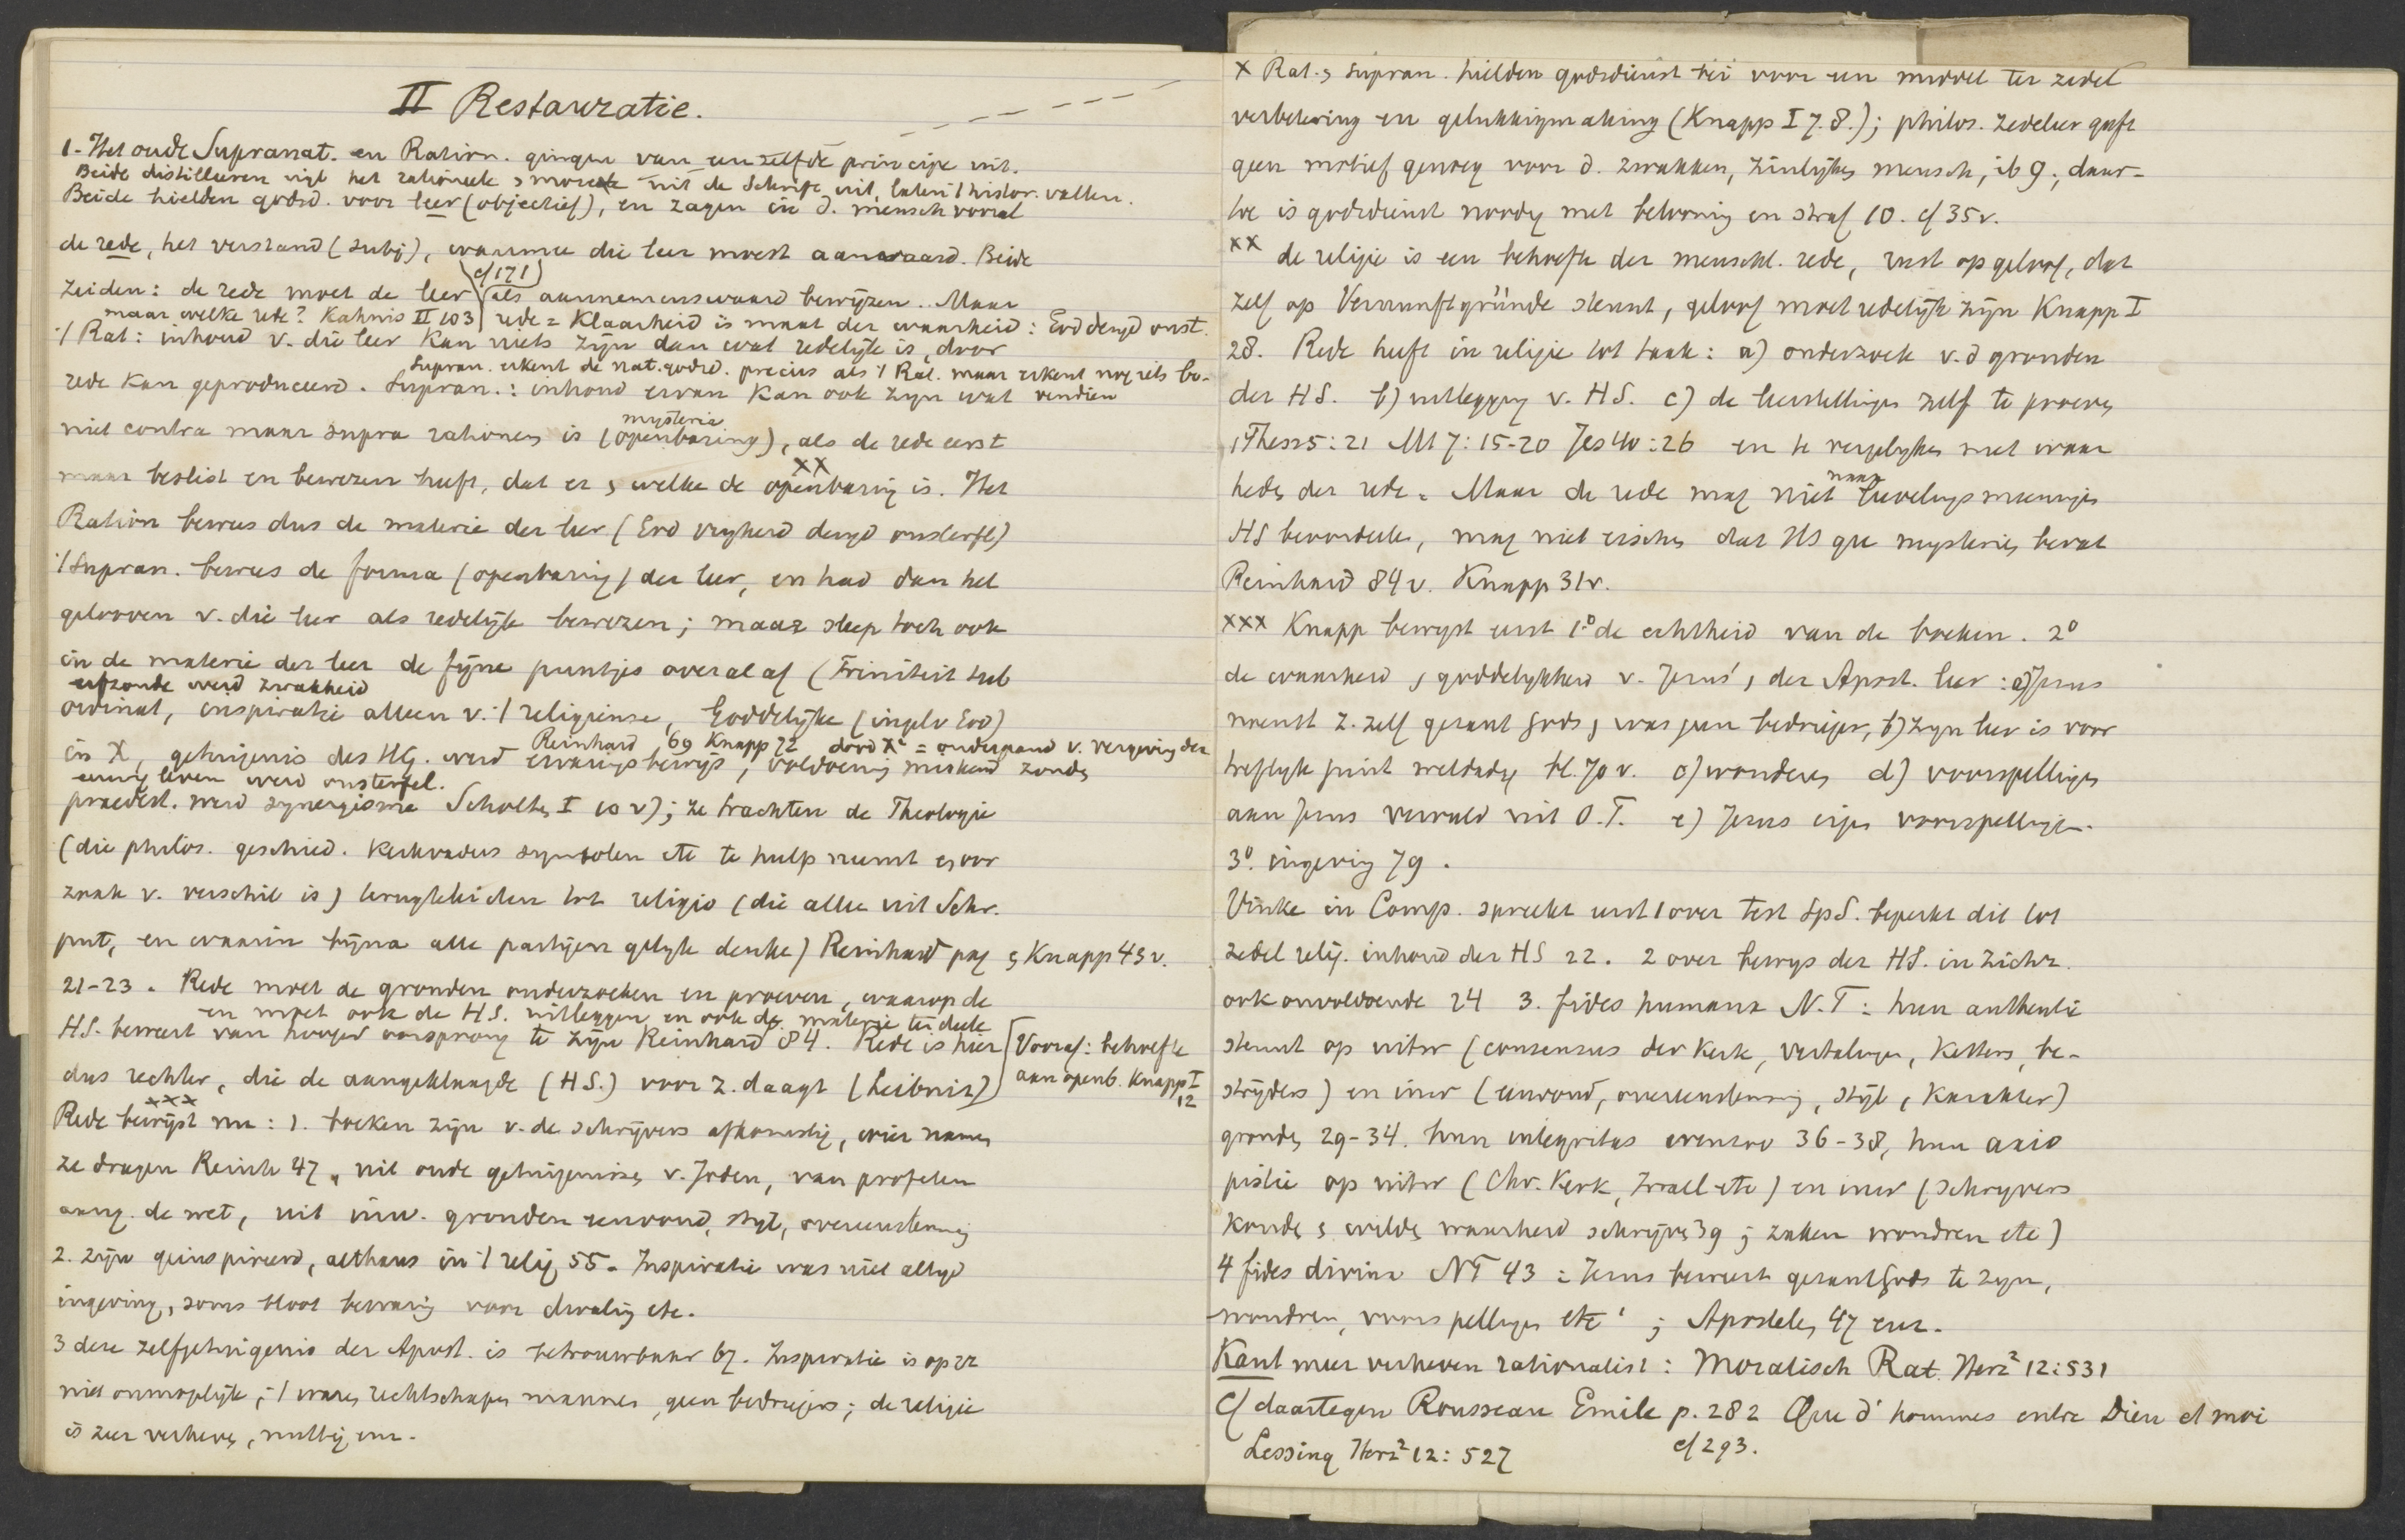 II Restauratie.
1. Het oude Supranat. en Ration. gingen van eenzelfde principe uit.
Beide distilleeren uit het rationeele & moreele uit de Schrift uit, laten 't histor. vallen.
Beide hielden godsd. voor leer (objectief), en zagen in d. mensch vooral
de rede, het verstand (subj), waarmee die leer moest aanvaard. Beide
cf 171
zeiden: de rede moet de leer als aannemenswaard bewijzen. Maar
maar welke rede? Kahnis II 103 rede = Klaarheid is maat der waarheid: God deugd onst.
't Rat: inhoud v. die leer kan niets zijn dan wat redelijk is, door
Supran. erkent de nat. godsd. precies als 't Rat. maar erkent nog iets bo-
rede kan geproduceerd. Supran.: inhoud ervan kan ook zijn wat vendien
mysteria
niet contra maar supra rationem is (openbaring), als de rede eerst
xx
maar beslist en bewezen heeft, dat er & welke de openbaring is. Het
Ration bewees dus de materie der leer (God vrijheid deugd onsterfl)
't Supran. bewees de forma (openbaring) der leer, en had dan het
gelooven v. die leer als redelijk bewezen; maar sleep toch ook
in de materie der leer de fijne puntjes overal af (Triniteit sub
erfzonde werd zwakheid
ordinat, inspiratie alleen v. 't religieuse, Goddelijke (ingelv God)
Reinhard 69 Knapp 72 dood X⁠ˢ = onderpand v. vergeving der
in X, getuigenis des HG. werd ervaringsbewijs, voldoening miskend zonde
eeuwig leven werd onsterfel.
praedest. werd synergisme Scholten I 10 v); ze trachten de Theologie
(die philos. geschied. kerkvaders symbolen etc te hulp neemt & oor
zaak v. verschil is) terugteleiden tot religio (die alleen uit Schr.
put, en waarin bijna alle partijen gelijk denken) Reinhard pag & Knapp 43 v.
21-23. Rede moet de gronden onderzoeken en proeven, waarop de
en moet ook de H.S. uitleggen en ook de materie ten deele
HS. beweert van hooger oorsprong te zijn Reinhard 84. Rede is hier
Vooraf: behoefte
dus rechter, die de aangeklaagde (H.S.) voor z. daagt (Leibniz)
aan openb. Knapp I 12
xxx
Rede bewijst nu: 1. boeken zijn v. de schrijvers afkomstig, wier namen
ze dragen Reinh 47, uit oude getuigenissen v. Joden, van profeten
aang. de wet, uit inw. gronden eenvoud, stijl, overeenstemming
2. zijn geinspireerd, althans in 't relig. 55. Inspiratie was niet altijd
ingeving, soms bloot bewaring voor dwaling etc.
3 deze zelfgetuigenis der Apost. is betrouwbaar 67. Inspiratie is op zz
niet onmogelijk; 't waren rechtschapen mannen, geen bedriegers; de religie
is zeer verheven, nuttig enz.
x Rat. & supran. hielden godsdienst bei voor een middel ter zedel
verbetering en gelukkigmaking (Knapp I 7.8.); philos. zedeleer geeft
geen motief genoeg voor d. zwakken, zinlijken mensch, ib 9., daar-
toe is godsdienst noodig met belooning en straf 10. cf 35 v.
xx de religie is een behoefte der menschl. rede, rust op geloof, dat
zelf op Vernunftgründe steunt, geloof moet redelijk zijn Knapp I
28. Rede heeft in religie tot taak: a) onderzoek v. d gronden
der HS. b) uitlegging v. HS. c) de leerstellingen zelf te proeven
1 Thess 5:21 Mt 7:15-20 Jes 40:26 en te vergelijken met waar
heden der rede. Maar de rede mag niet naar lievelingsmeeningen
HS beoordeelen, mag niet eischen dat HS gee mysteries bevat
Reinhard 84 v. Knapp 31 v.
xxx Knapp bewijst eerst 1.° de echtheid van de boeken. 2°
de waarheid & goddelijkheid v. Jezus' & der Apost. leer: a) Jezus
noemt z. zelf gezant Gods & was geen bedrieger, b) zijn leer is voor
treflijk juist weldadig bl. 70 v. c) wonderen d) voorspellingen
aan Jezus vervuld uit O.T. e) Jezus eigen voorspellingen.
3° ingeving 79.
Vinke in Comp. spreekt eerst 1 over test SpS. beperkt dit tot
zedel relig. inhoud der HS 22. 2 over bewijs der HS. in zichz.
ook onvoldoende 24 3. fides humana N.T: hun authentie
steunt op uitw (consensus der Kerk, Vertalingen, Ketters, be-
strijders) en inw (eenvoud, overeenstemming, stijl, karakter)
gronden 29-34. hun integritas evenzoo 36-38, hun axio
pistie op uitw (Chr. Kerk, Israel etc) en inw (schrijvers
konden & wilden waarheid schrijven 39; zaken wondren etc)
4 fides divina NT 43: Jezus beweert gezant Gods te zijn,
wondren, voorspellingen etc; Apostelen 47 enz.
Kant meer verheven rationalist: Moralisch Rat. Herz² 12:531
Cf daartegen Rousseau Emile p. 282 Que d'hommes entre Dieu et moi
Lessing Herz² 12: 527 cf 293.